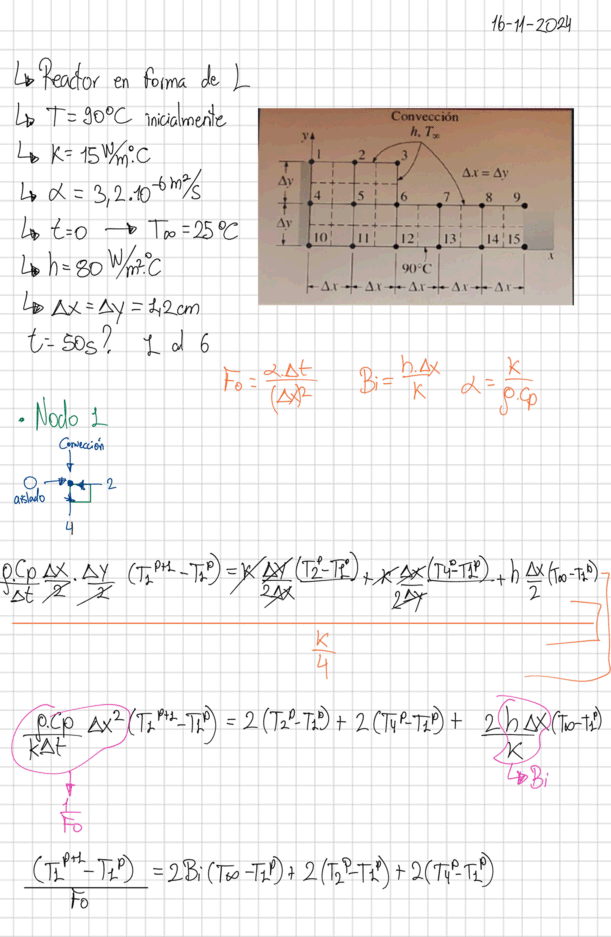 16-11-2024
↳ Reactor en forma de L
↳ T=90°C inicialmente
↳ K=15 W/m.°C
↳ α=3,2.10⁻⁶ m²/s
↳ t=0 → T∞=25°C
↳ h=80 W/m².°C
↳ Δx=Δy=1,2cm
t=50s? 1 al 6
Convección
h, T∞
Δx = Δy
y
1 2 3
Δy
4 5 6 7 8 9
Δy
10 11 12 13 14 15
x
90°C
Δx Δx Δx Δx Δx
Fo = α.Δt/(Δx)² Bi = h.Δx/K α = K/ρ.Cp
• Nodo 1
Convección
aislado 2
4
ρ.Cp/Δt Δx/2 . Δy/2 (T1^p+1 - T1^p) = K Δy/2Δx (T2^p - T1^p) + K Δx/2Δy (T4^p - T1^p) + h Δx/2 (T∞ - T1^p)
K/4
ρ.Cp/KΔt Δx² (T1^p+1 - T1^p) = 2(T2^p - T1^p) + 2(T4^p - T1^p) + 2hΔx/K (T∞ - T1^p)
↳ Bi
1/Fo
(T1^p+1 - T1^p)/Fo = 2Bi(T∞ - T1^p) + 2(T2^p - T1^p) + 2(T4^p - T1^p)